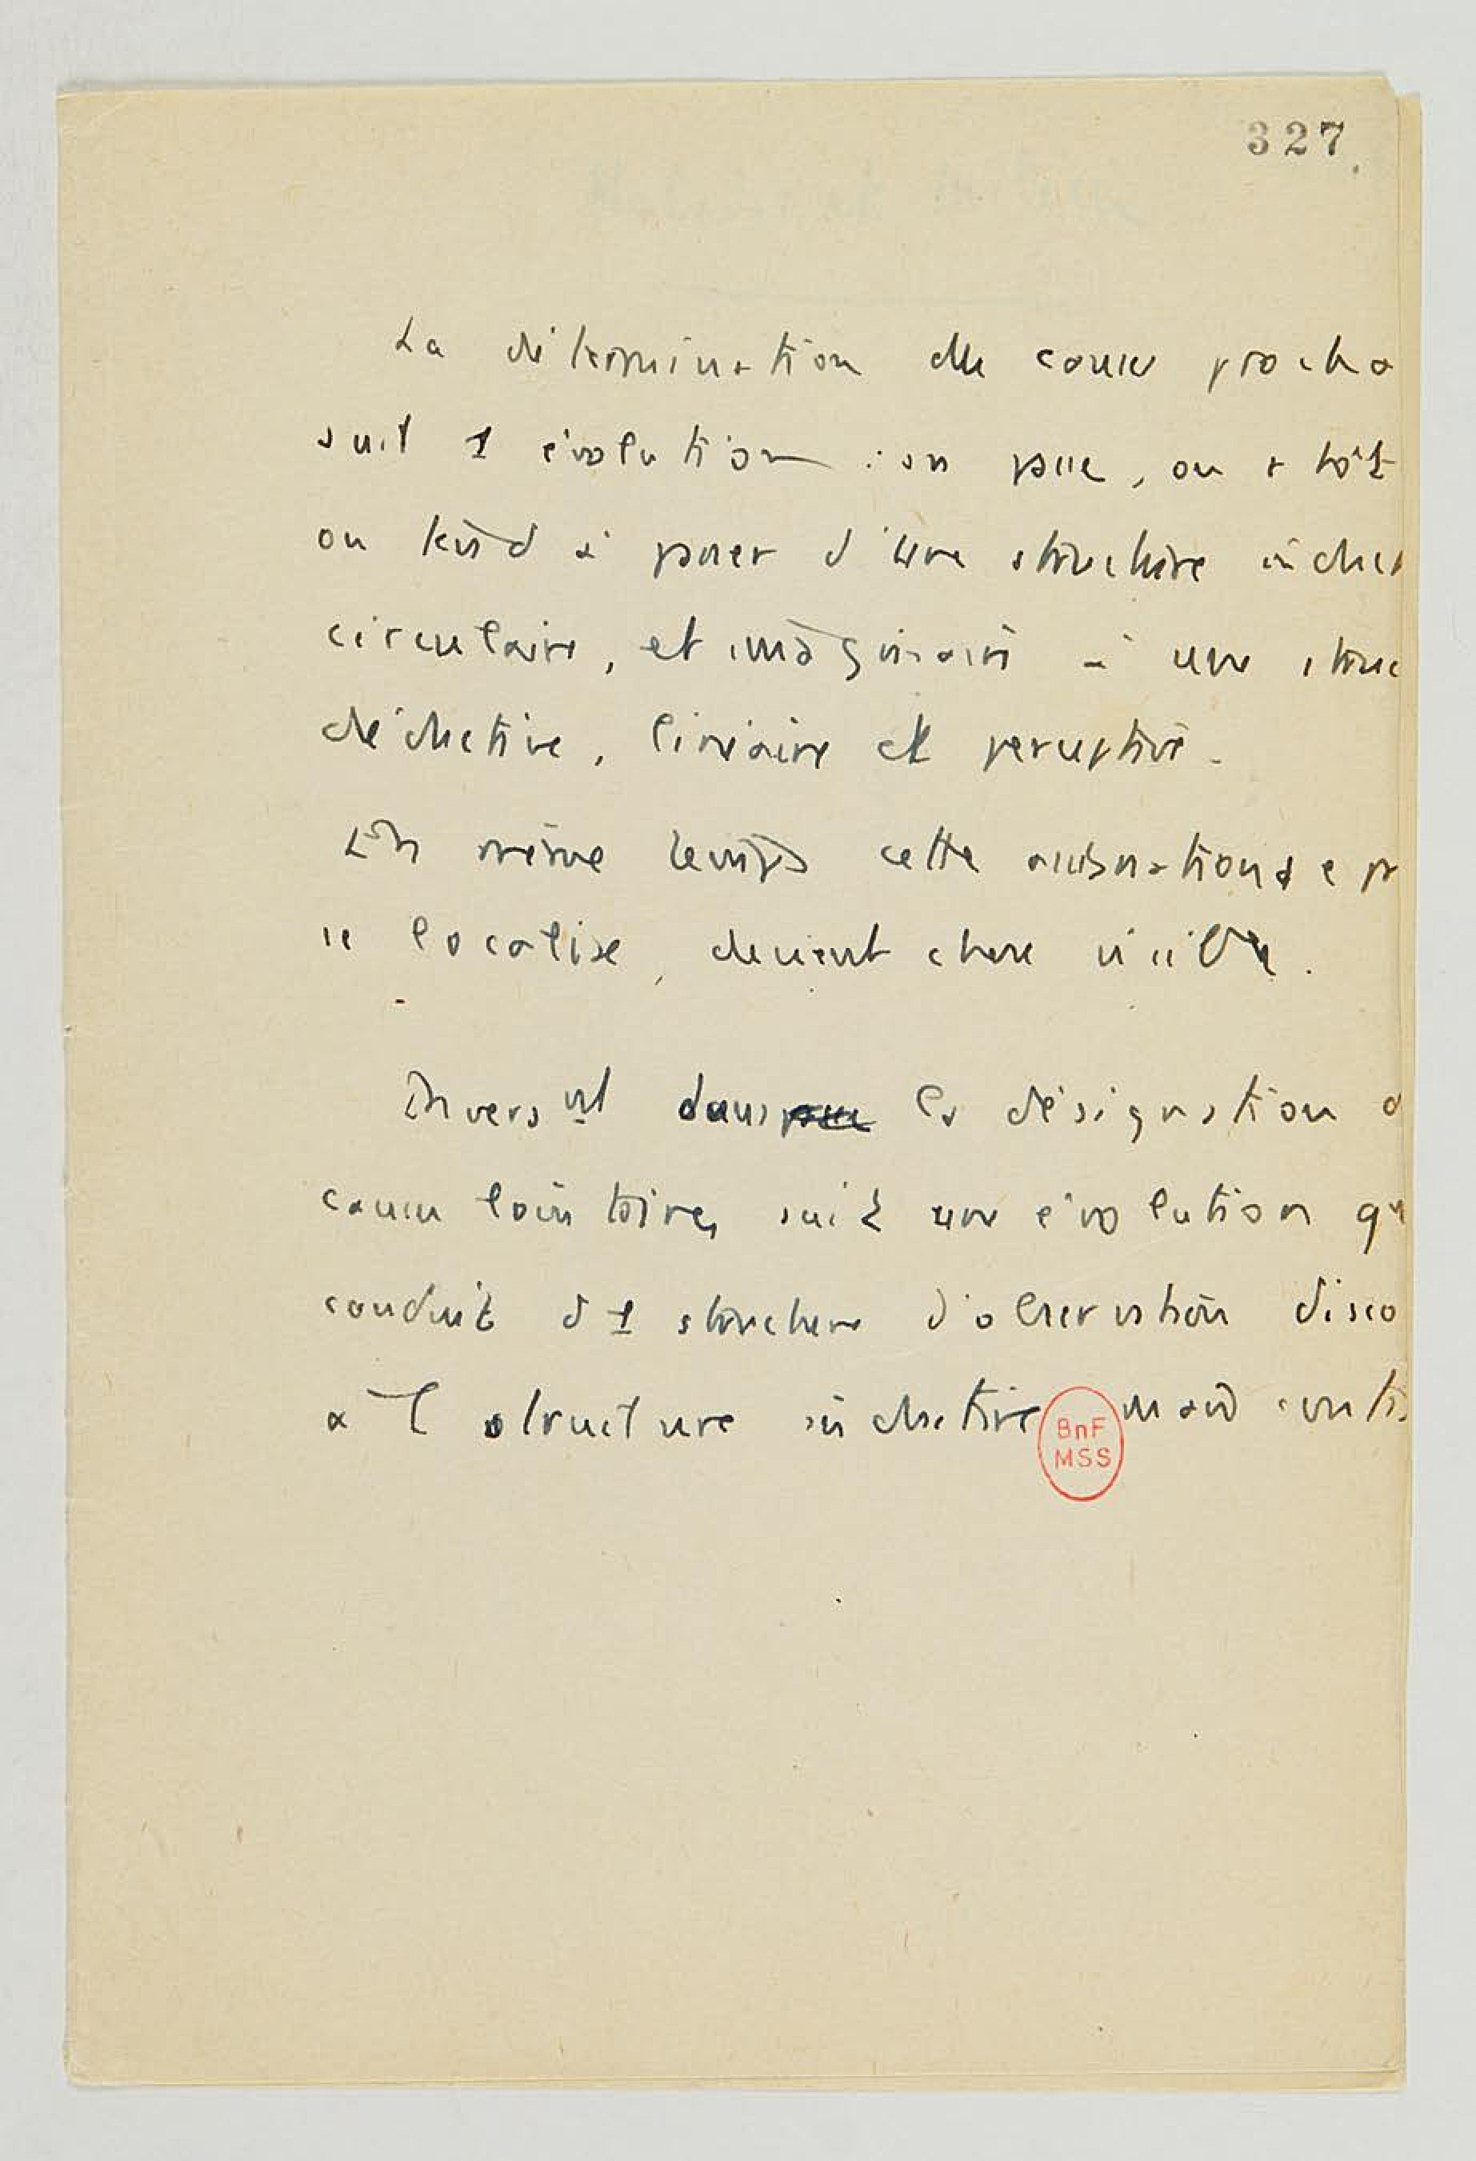 327
La détermination des causes procha
suit 1 évolution : on passe, ou + tôt
on tend à passer d'une structure induc
circulaire, et imaginaire à une struc
déductive, linéaire et perceptive.
En même temps cette se
se localise, devient chose visible.
Inversmt dans la désignation d
causes lointaines suit une évolution qu
conduit d 1 structure d'observation disco
à 1 structure inductive mais conti
BnF
MSS